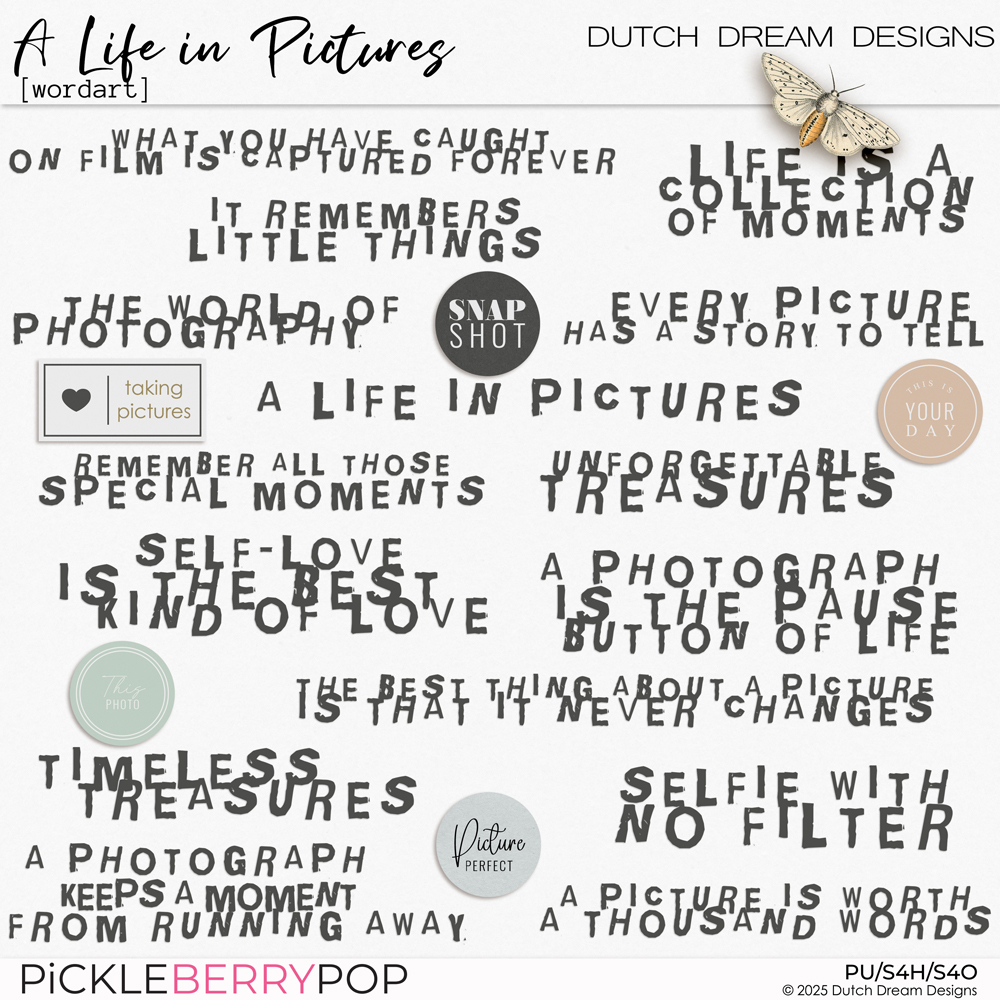 A Life in Pictures
[wordart]
DUTCH DREAM DESIGNS
WHAT YOU HAVE CAUGHT
ON FILM IS CAPTURED FOREVER
LIFE IS A
COLLECTION
OF MOMENTS
IT REMEMBERS
LITTLE THINGS
THE WORLD OF
PHOTOGRAPHY
SNAP
SHOT
EVERY PICTURE
HAS A STORY TO TELL
taking
pictures
A LIFE IN PICTURES
THIS IS
YOUR
DAY
REMEMBER ALL THOSE
SPECIAL MOMENTS
UNFORGETTABLE
TREASURES
SELF-LOVE
IS THE BEST
KIND OF LOVE
A PHOTOGRAPH
IS THE PAUSE
BUTTON OF LIFE
This
PHOTO
THE BEST THING ABOUT A PICTURE
IS THAT IT NEVER CHANGES
TIMELESS
TREASURES
SELFIE WITH
NO FILTER
Picture
PERFECT
A PHOTOGRAPH
KEEPS A MOMENT
FROM RUNNING AWAY.
A PICTURE IS WORTH
A THOUSAND WORDS
PiCKLEBERRYPOP
PU/S4H/S4O
© 2025 Dutch Dream Designs